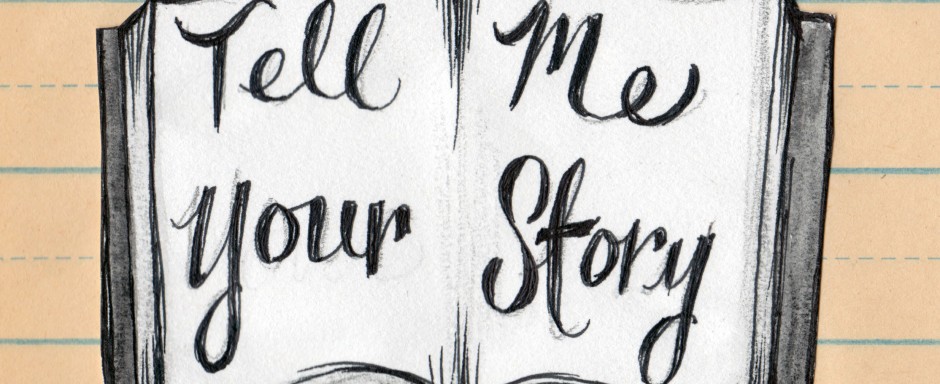 Tell Me
Your Story